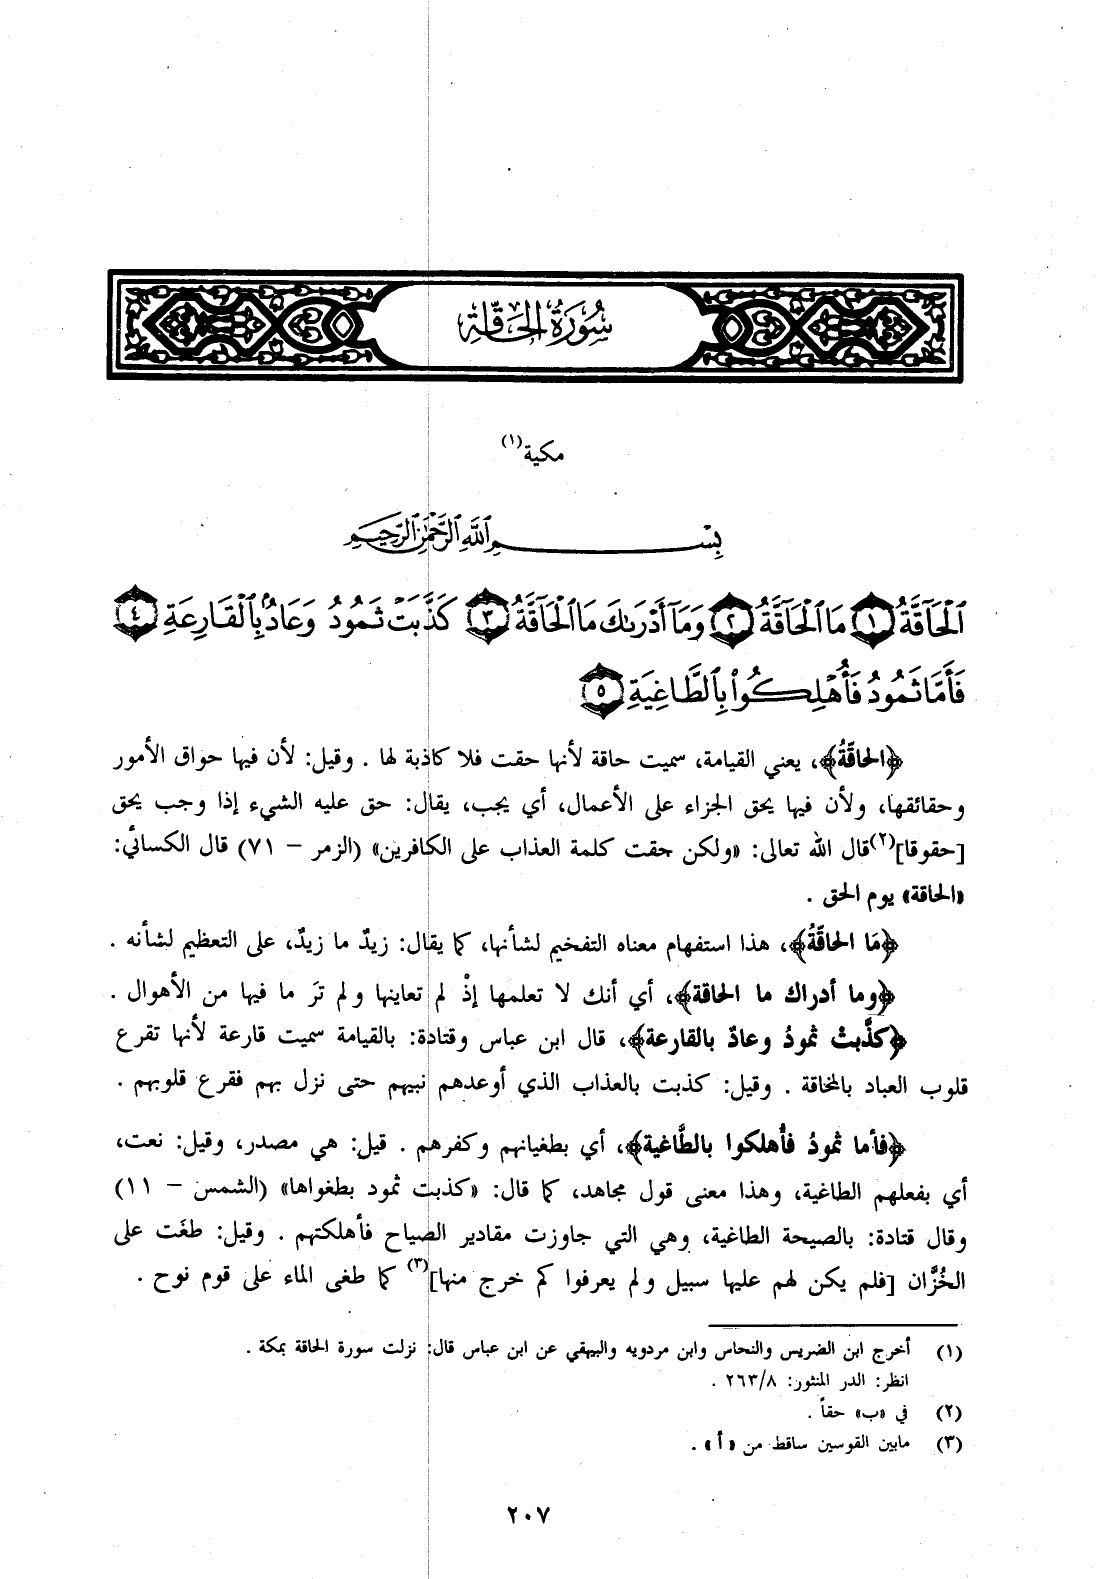 سُورَةُ الحَاقَّة
مكية(١)
بِسْمِ ٱللَّهِ ٱلرَّحْمَٰنِ ٱلرَّحِيمِ
ٱلْحَآقَّةُ ١ مَا ٱلْحَآقَّةُ ٢ وَمَآ أَدْرَىٰكَ مَا ٱلْحَآقَّةُ ٣ كَذَّبَتْ ثَمُودُ وَعَادٌۢ بِٱلْقَارِعَةِ ٤
فَأَمَّا ثَمُودُ فَأُهْلِكُوا۟ بِٱلطَّاغِيَةِ ٥
﴿الحاقَّةُ﴾، يعني القيامة، سميت حاقة لأنها حقت فلا كاذبة لها . وقيل: لأن فيها حواق الأمور
وحقائقها، ولأن فيها يحق الجزاء على الأعمال، أي يجب، يقال: حق عليه الشيء إذا وجب يحق
[حقوقا](٢)قال الله تعالى: «ولكن حقت كلمة العذاب على الكافرين» (الزمر – ٧١) قال الكسائي:
«الحاقة» يوم الحق .
﴿مَا الحاقَّةُ﴾، هذا استفهام معناه التفخيم لشأنها، كما يقال: زيدٌ ما زيدٌ، على التعظيم لشأنه .
﴿وما أدراك ما الحاقة﴾، أي أنك لا تعلمها إذْ لم تعاينها ولم ترَ ما فيها من الأهوال .
﴿كذَّبتْ ثمودُ وعادٌ بالقارعة﴾، قال ابن عباس وقتادة: بالقيامة سميت قارعة لأنها تقرع
قلوب العباد بالمخافة . وقيل: كذبت بالعذاب الذي أوعدهم نبيهم حتى نزل بهم فقرع قلوبهم .
﴿فأما ثمودُ فأُهلكوا بالطَّاغية﴾، أي بطغيانهم وكفرهم . قيل: هي مصدر، وقيل: نعت،
أي بفعلهم الطاغية، وهذا معنى قول مجاهد، كما قال: «كذبت ثمود بطغواها» (الشمس – ١١)
وقال قتادة: بالصيحة الطاغية، وهي التي جاوزت مقادير الصياح فأهلكتهم . وقيل: طغَت على
الخُزَّان [فلم يكن لهم عليها سبيل ولم يعرفوا كم خرج منها](٣) كما طغى الماء على قوم نوح .
(١) أخرج ابن الضريس والنحاس وابن مردويه والبيهقي عن ابن عباس قال: نزلت سورة الحاقة بمكة .
انظر: الدر المنثور: ٢٦٣/٨ .
(٢) في «ب» حقاً .
(٣) مابين القوسين ساقط من «أ» .
٢٠٧